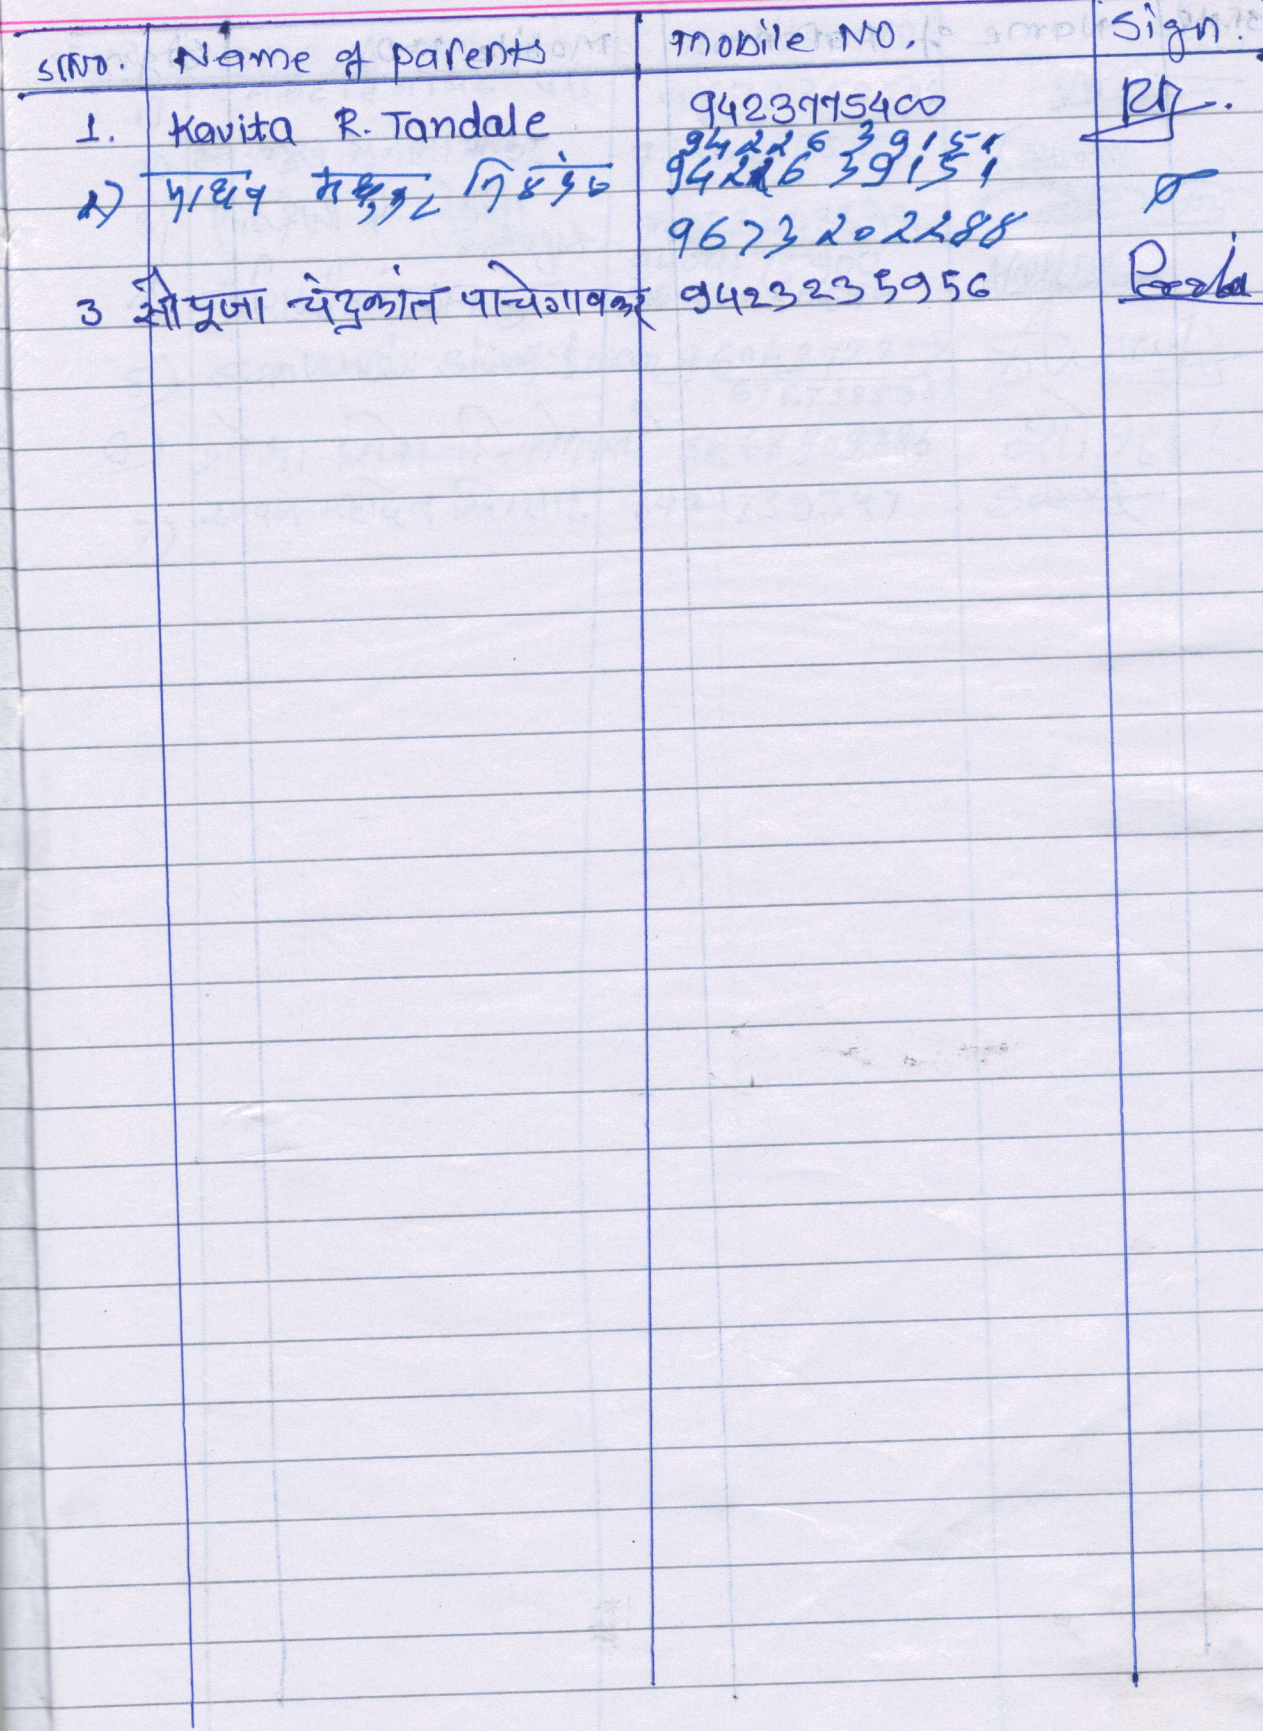 Sr.No. Name of parents Mobile NO. Sign.
1. Kavita R. Tandale 9423775400
9422639151
2) माधव 9422639151
9673202288
3 सौ पूजा चंद्रकांत पाचेगावकर 9423235956